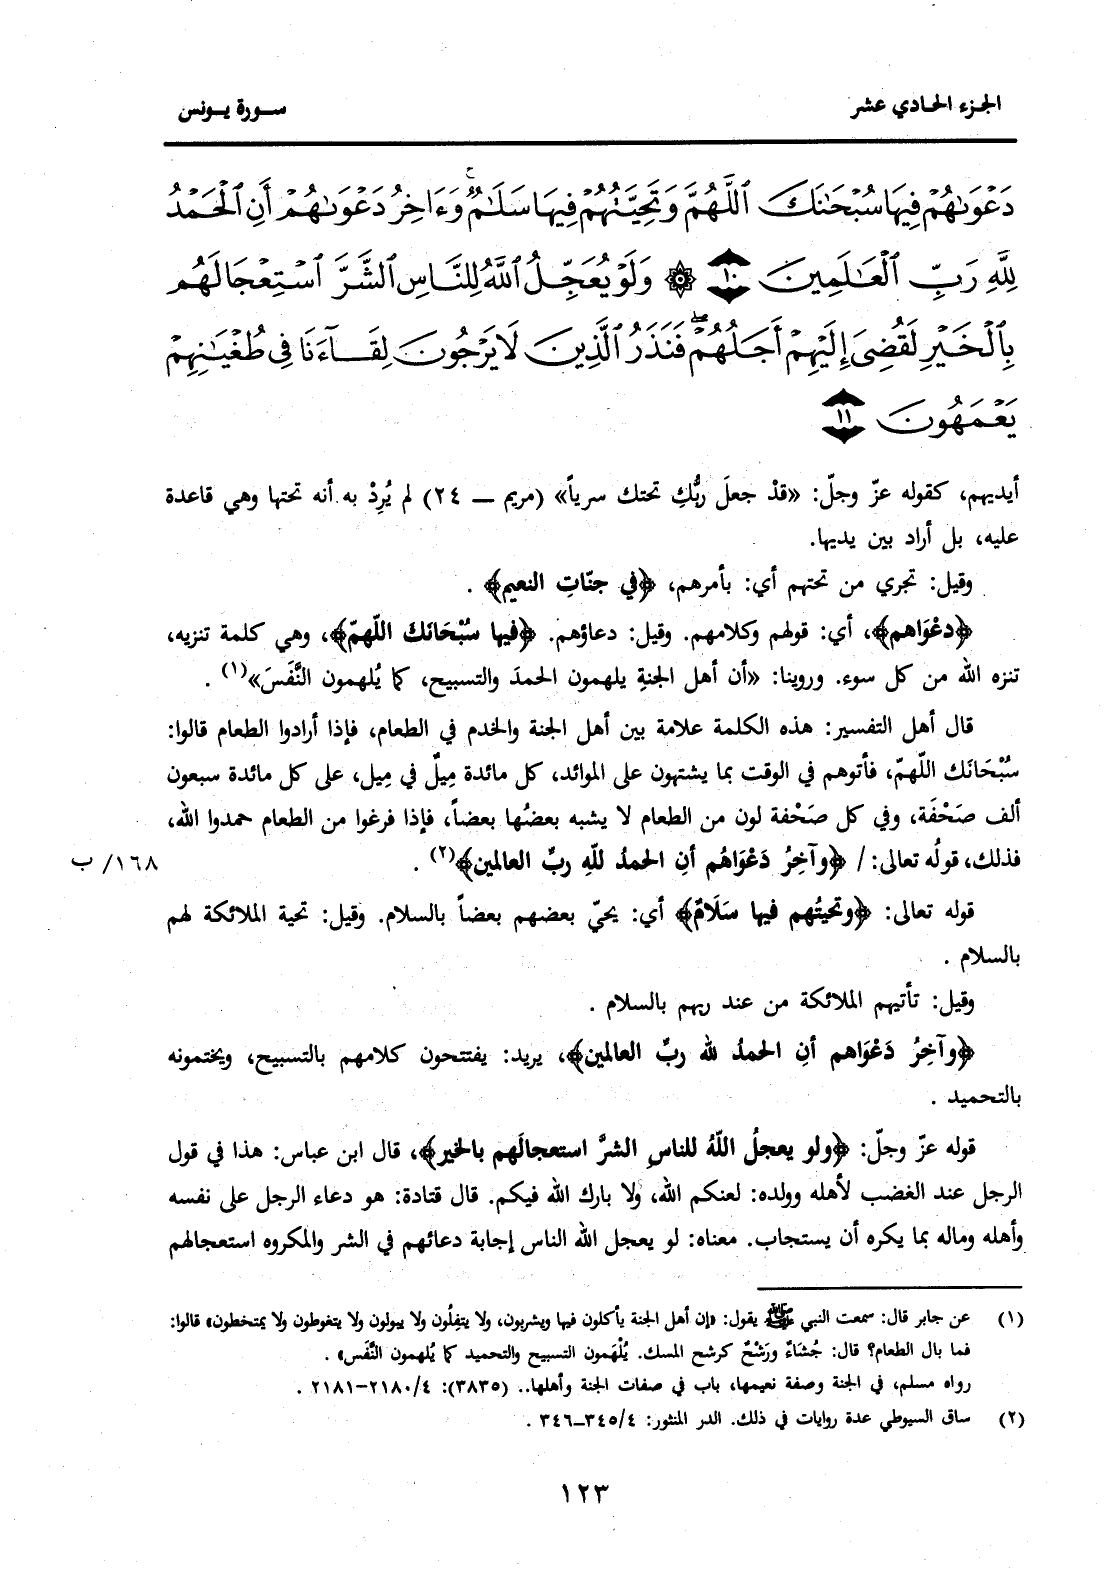 الجزء الحادي عشر
سورة يونس
دَعْوَىٰهُمْ فِيهَا سُبْحَٰنَكَ ٱللَّهُمَّ وَتَحِيَّتُهُمْ فِيهَا سَلَٰمٌ ۚ وَءَاخِرُ دَعْوَىٰهُمْ أَنِ ٱلْحَمْدُ
لِلَّهِ رَبِّ ٱلْعَٰلَمِينَ ١٠ ۞ وَلَوْ يُعَجِّلُ ٱللَّهُ لِلنَّاسِ ٱلشَّرَّ ٱسْتِعْجَالَهُم
بِٱلْخَيْرِ لَقُضِىَ إِلَيْهِمْ أَجَلُهُمْ ۖ فَنَذَرُ ٱلَّذِينَ لَا يَرْجُونَ لِقَآءَنَا فِى طُغْيَٰنِهِمْ
يَعْمَهُونَ ١١
أيديهم، كقوله عزّ وجلّ: «قدْ جعلَ ربُّكِ تحتك سرياً» (مريم ــ ٢٤) لم يُرِدْ به أنه تحتها وهي قاعدة
عليه، بل أراد بين يديها.
وقيل: تجري من تحتهم أي: بأمرهم، ﴿في جنّاتِ النعيم﴾ .
﴿دعْوَاهم﴾، أي: قولهم وكلامهم. وقيل: دعاؤهم. ﴿فيها سُبْحَانَكَ اللّهمّ﴾، وهي كلمة تنزيه،
تنزه الله من كل سوء. وروينا: «أن أهل الجنةِ يلهمون الحمدَ والتسبيح، كما يُلهمون النَّفَسَ»(١) .
قال أهل التفسير: هذه الكلمة علامة بين أهل الجنة والخدم في الطعام، فإذا أرادوا الطعام قالوا:
سُبْحَانَك اللّهمّ، فأتوهم في الوقت بما يشتهون على الموائد، كل مائدة مِيلٌ في مِيل، على كل مائدة سبعون
ألف صَحْفَة، وفي كل صَحْفة لون من الطعام لا يشبه بعضُها بعضاً، فإذا فرغوا من الطعام حمدوا الله،
فذلك، قولُه تعالى: / ﴿وآخِرُ دَعْوَاهُم أنِ الحمدُ للّهِ ربِّ العالمين﴾(٢) .
١٦٨/ ب
قوله تعالى: ﴿وتحيتُهم فيها سَلَامٌ﴾ أي: يحيّ بعضهم بعضاً بالسلام. وقيل: تحية الملائكة لهم
بالسلام .
وقيل: تأتيهم الملائكة من عند ربهم بالسلام .
﴿وآخِرُ دَعْوَاهم أنِ الحمدُ لله ربِّ العالمين﴾، يريد: يفتتحون كلامهم بالتسبيح، ويختمونه
بالتحميد .
قوله عزّ وجلّ: ﴿ولو يعجلُ اللّهُ للناسِ الشرَّ استعجالَهم بالخير﴾، قال ابن عباس: هذا في قول
الرجل عند الغضب لأهله وولده: لعنكم الله، ولا بارك الله فيكم. قال قتادة: هو دعاء الرجل على نفسه
وأهله وماله بما يكره أن يستجاب. معناه: لو يعجل الله الناس إجابة دعائهم في الشر والمكروه استعجالهم
(١) عن جابر قال: سمعت النبي ﷺ يقول: «إن أهل الجنة يأكلون فيها ويشربون، ولا يتفِلُون ولا يبولون ولا يتغوطون ولا يمتخطون» قالوا:
فما بال الطعام؟ قال: جُشَاءٌ ورَشْحٌ كرشح المسك. يُلْهَمون التسبيح والتحميد كما يُلهمون النَّفَس» .
رواه مسلم، في الجنة وصفة نعيمها، باب في صفات الجنة وأهلها.. (٣٨٣٥): ٤/٢١٨٠-٢١٨١ .
(٢) ساق السيوطي عدة روايات في ذلك. الدر المنثور: ٤/٣٤٥ــ٣٤٦ .
١٢٣